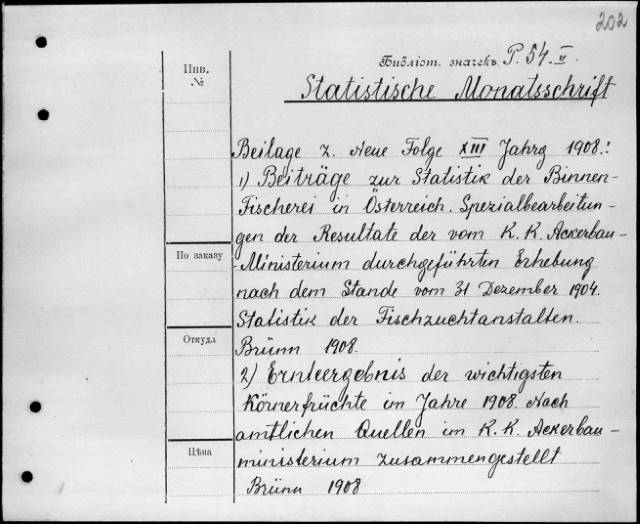 202
Библіот. значекъ P. 54. II.
Инв.
№
Statistische Monatsschrift
Beilage z. Neue Folge XIII Jahrg 1908.:
1) Beiträge zur Statistik der Binnen-
Fischerei in Österreich. Spezialbearbeitun-
gen der Resultate der vom K. K. Ackerbau-
По заказу
-Ministerium durchgeführten Erhebung
nach dem Stande vom 31 Dezember 1904.
Statistik der Fischzuchtanstalten.
Откуда
Brünn 1908.
2) Ernteergebnis der wichtigsten
Körnerfrüchte im Jahre 1908. Nach
amtlichen Quellen im K. K. Ackerbau-
Цѣна
ministerium zusammengestellt
Brünn 1908